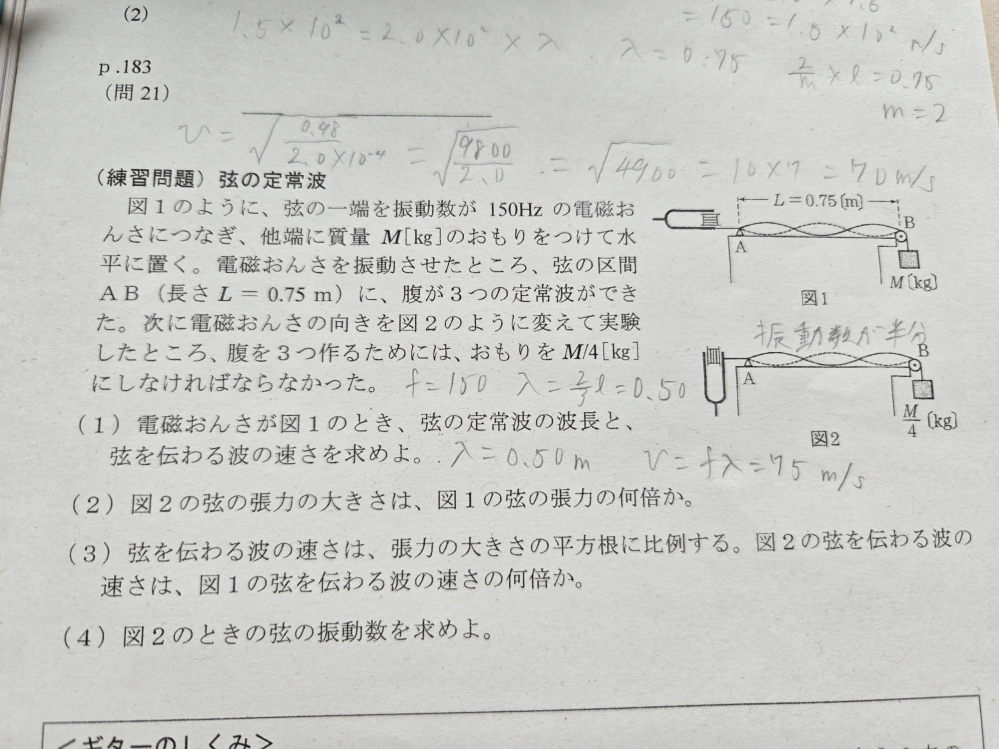 (2)
= 150 = 1.5 × 10² m/s
1.5 × 10² = 2.0 × 10² × λ  λ = 0.75
p.183
2/m × l = 0.75
(問 21)
m = 2
v = √(0.98/2.0×10⁻⁴) = √(9800/2.0) = √4900 = 10×7 = 70 m/s
(練習問題) 弦の定常波
図1のように、弦の一端を振動数が 150Hz の電磁お
んさにつなぎ、他端に質量 M[kg]のおもりをつけて水
平に置く。電磁おんさを振動させたところ、弦の区間
AB(長さ L = 0.75 m)に、腹が3つの定常波ができ
た。次に電磁おんさの向きを図2のように変えて実験
したところ、腹を3つ作るためには、おもりを M/4[kg]
にしなければならなかった。 f = 150  λ = 2/3 l = 0.50
L=0.75[m]
A
B
M[kg]
図1
振動数が半分
A
B
M/4 [kg]
図2
(1) 電磁おんさが図1のとき、弦の定常波の波長と、
弦を伝わる波の速さを求めよ。 λ = 0.50 m  v = fλ = 75 m/s
(2) 図2の弦の張力の大きさは、図1の弦の張力の何倍か。
(3) 弦を伝わる波の速さは、張力の大きさの平方根に比例する。図2の弦を伝わる波の
速さは、図1の弦を伝わる波の速さの何倍か。
(4) 図2のときの弦の振動数を求めよ。
<ギターのしくみ>